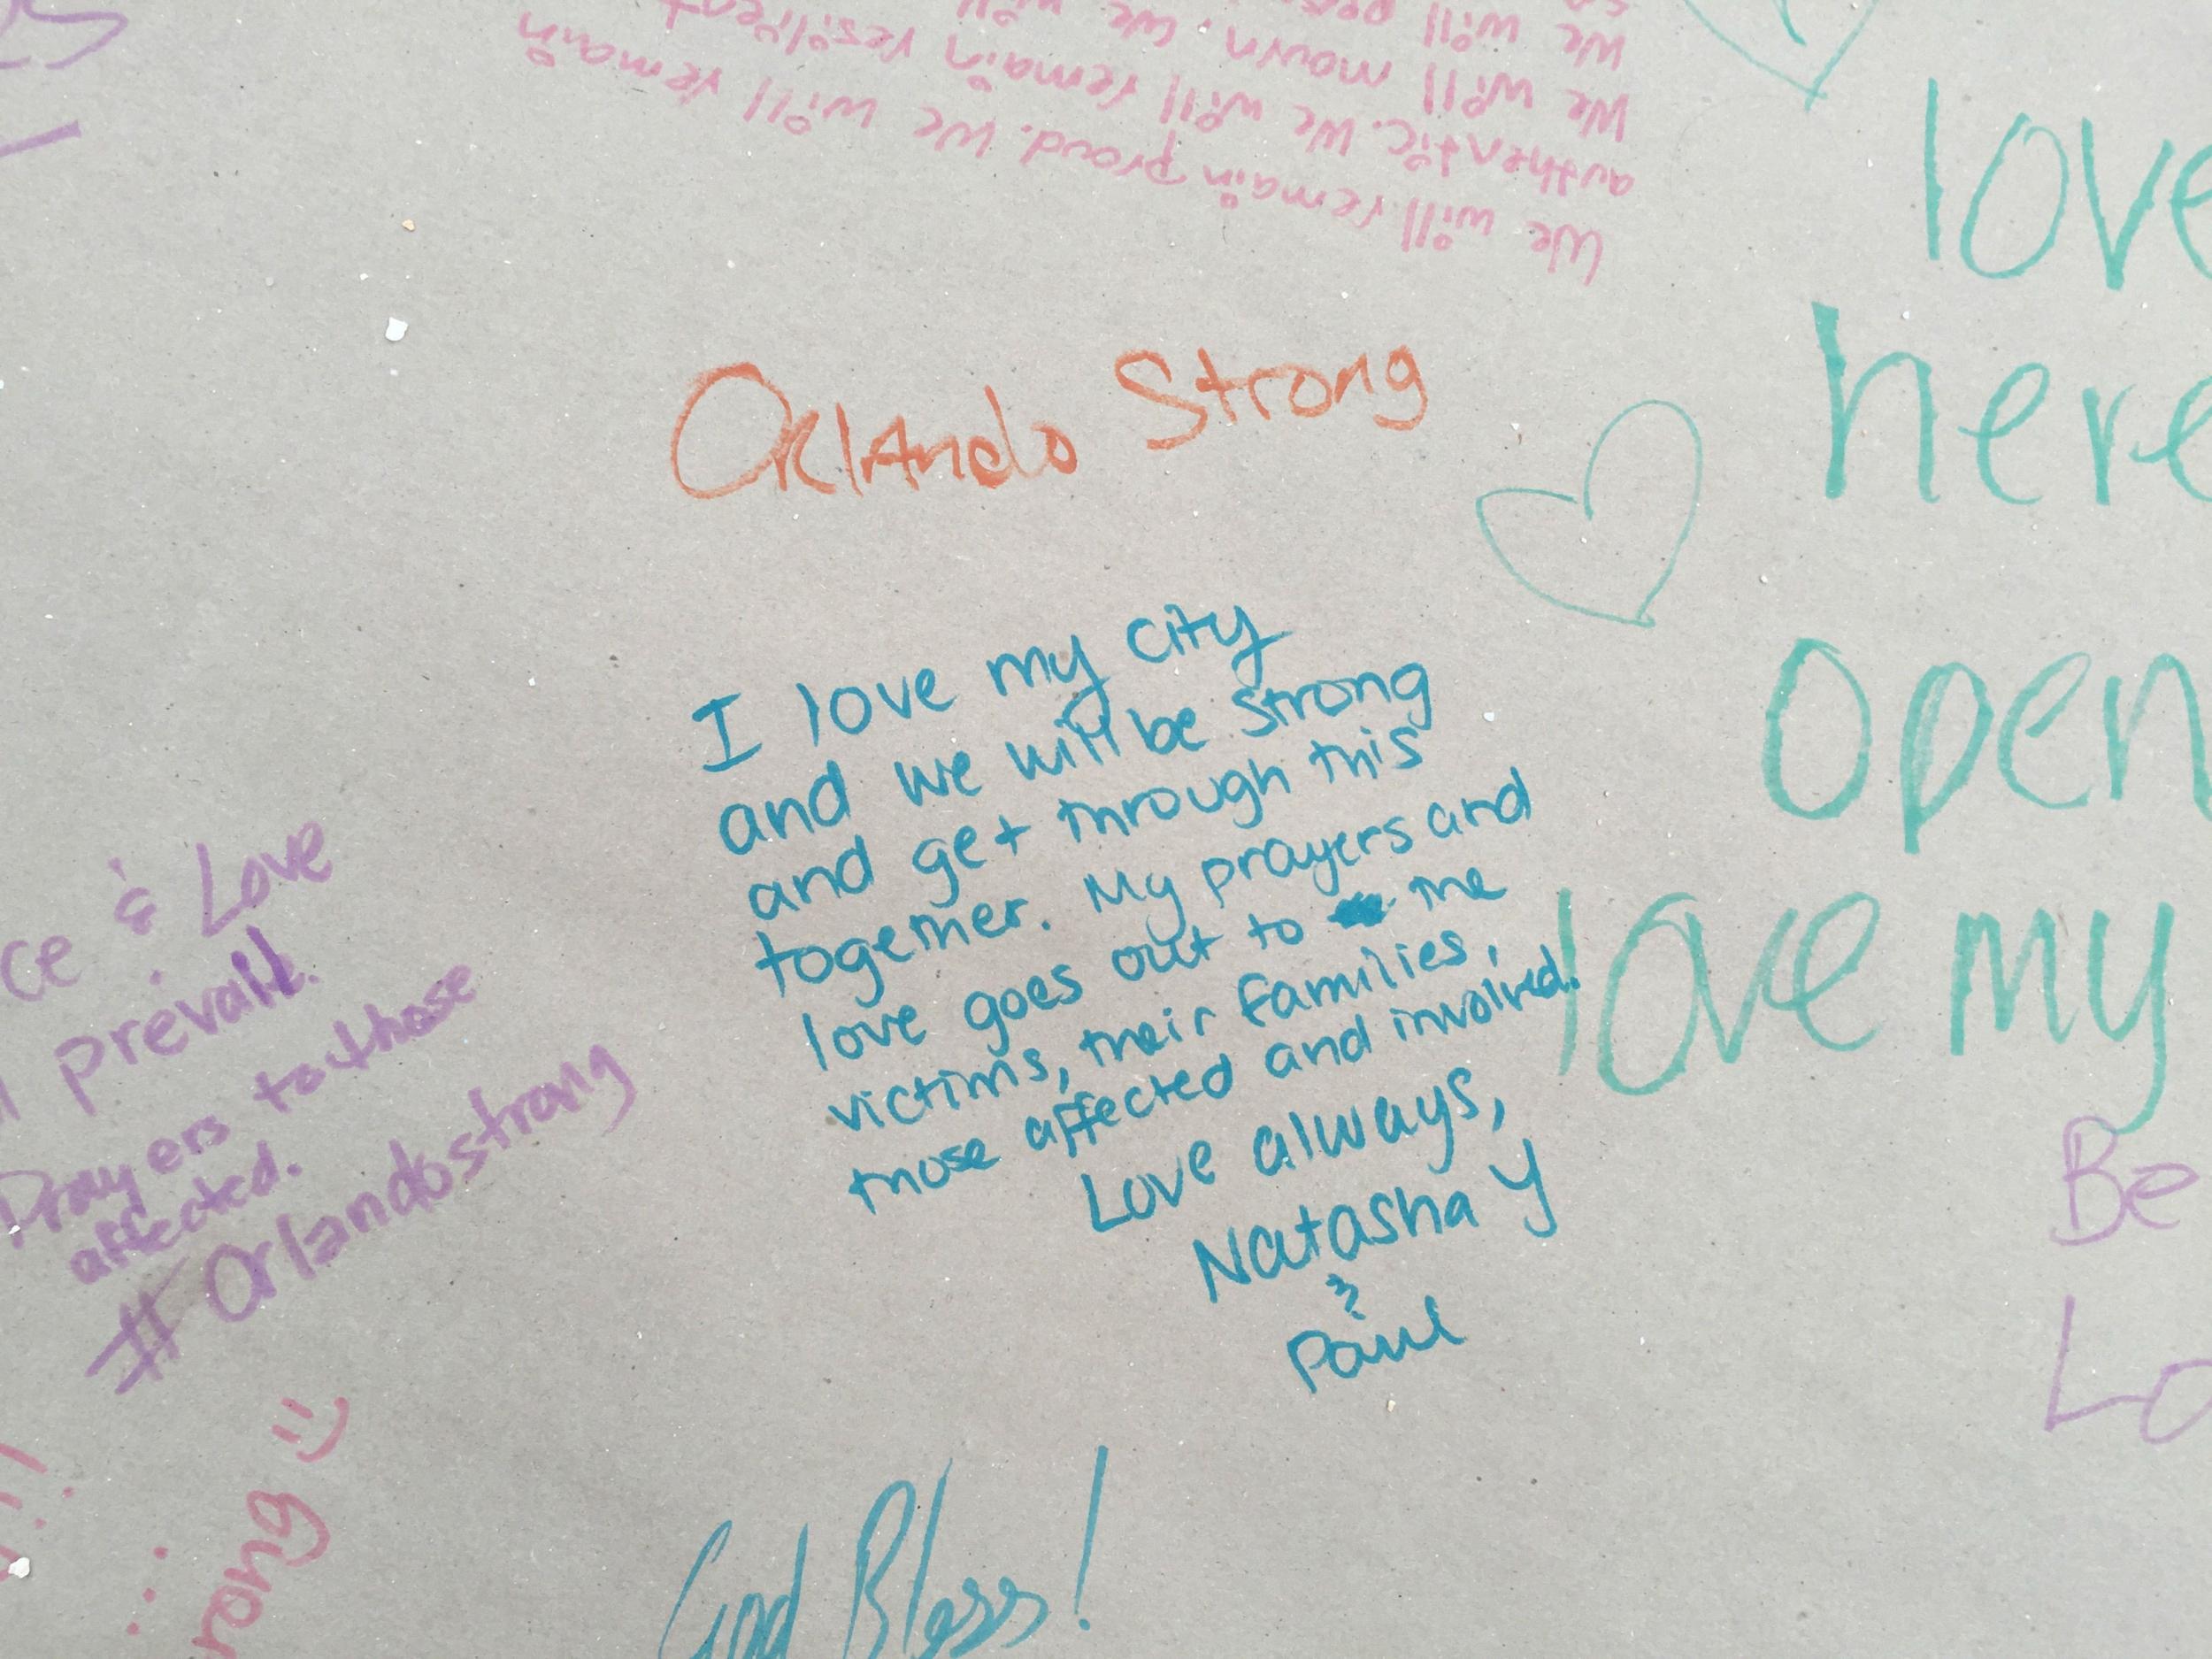 We will remain proud. We will remain
authentic. We will remain resilient
We will mourn. We
We will
love
here
Orlando Strong
open
love my
I love my city
and we will be strong
and get through this
together. My prayers and
love goes out to the
victims, their families,
those affected and involved.
Love always,
Natasha Y
&
Paul
& Love
prevail.
Prayers to those
affected.
#Orlandostrong
Be
God Bless!